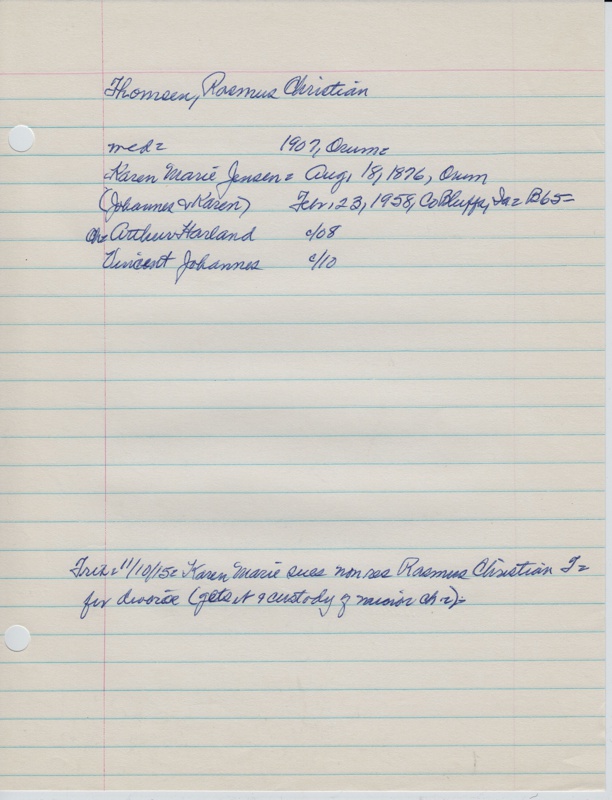 Thomsen, Rasmus Christian
med= 1907, Orum=
Karen Marie Jensen= Aug, 18, 1876, Orum
(Johannes & Karen) Febr, 23, 1958, CoBluffs, Ia= B65=
ch= Arthur Harland c/08
Vincent Johannes c/10
11/10/15= Karen Marie sues nonres Rasmus Christian T=
for divorce (gets it & custody of minor ch=)=